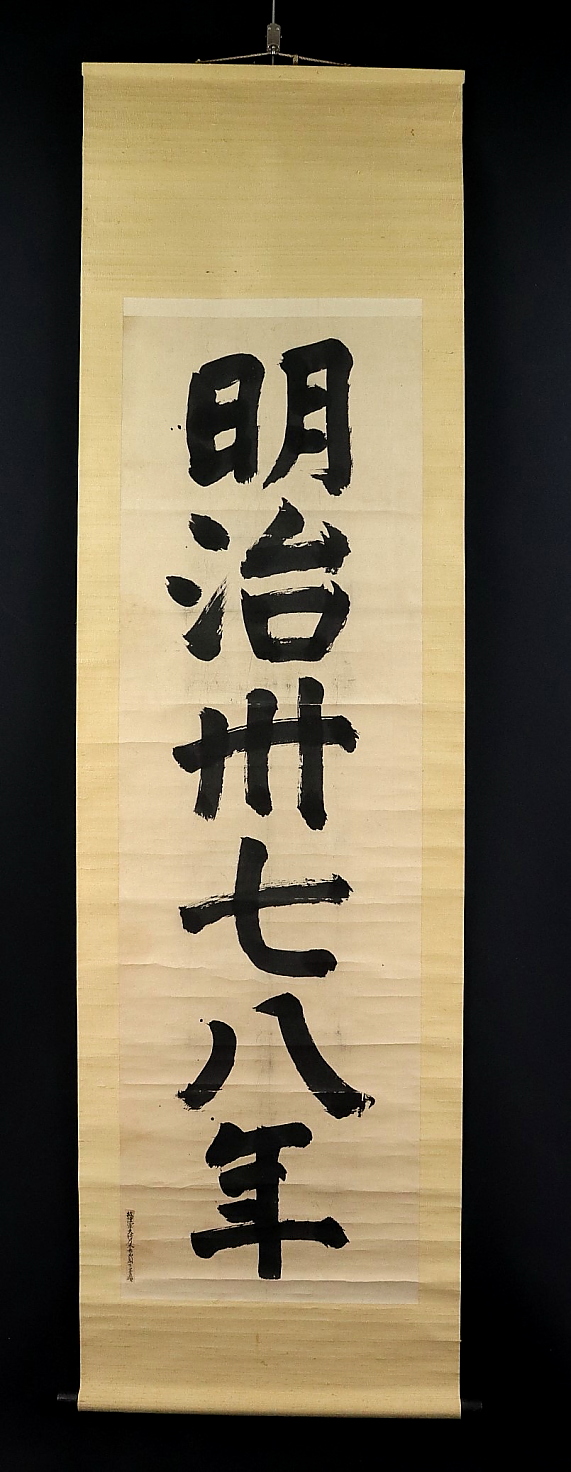 明治卅七八年